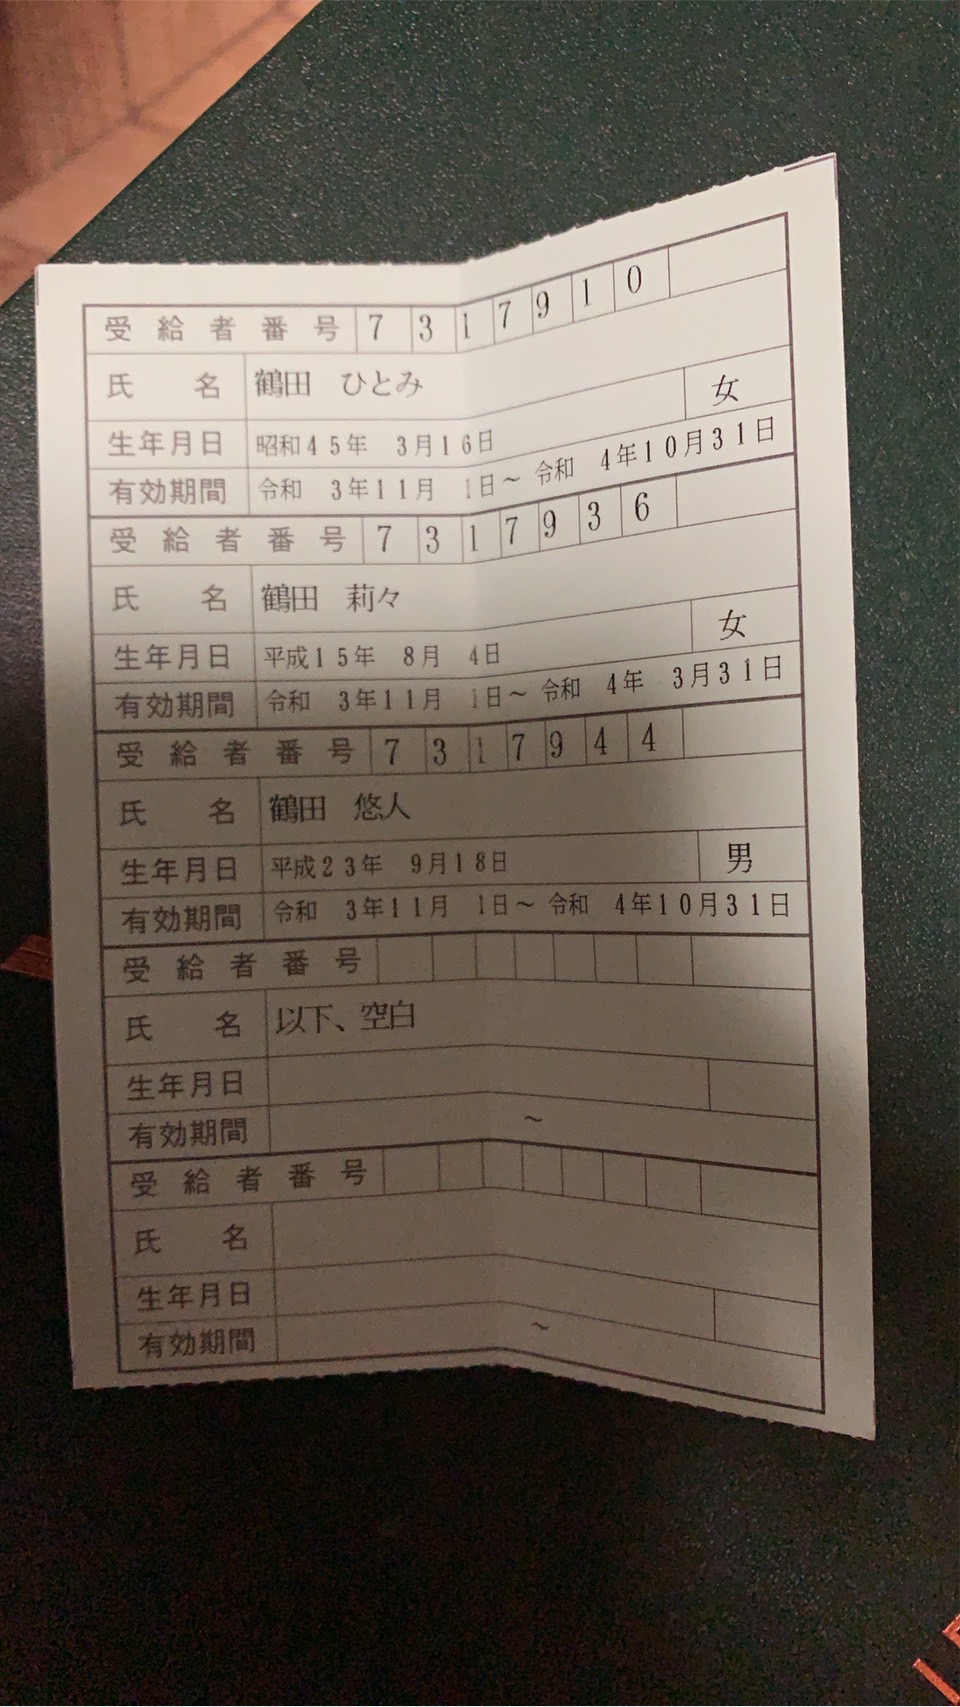 受給者番号 7 3 1 7 9 1 0
氏名 鶴田 ひとみ
女
生年月日 昭和45年 3月16日
有効期間 令和 3年11月 1日～令和 4年10月31日
受給者番号 7 3 1 7 9 3 6
氏名 鶴田 莉々
女
生年月日 平成15年 8月 4日
有効期間 令和 3年11月 1日～令和 4年 3月31日
受給者番号 7 3 1 7 9 4 4
氏名 鶴田 悠人
男
生年月日 平成23年 9月18日
有効期間 令和 3年11月 1日～令和 4年10月31日
受給者番号
氏名 以下、空白
生年月日
有効期間 ～
受給者番号
氏名
生年月日
有効期間 ～